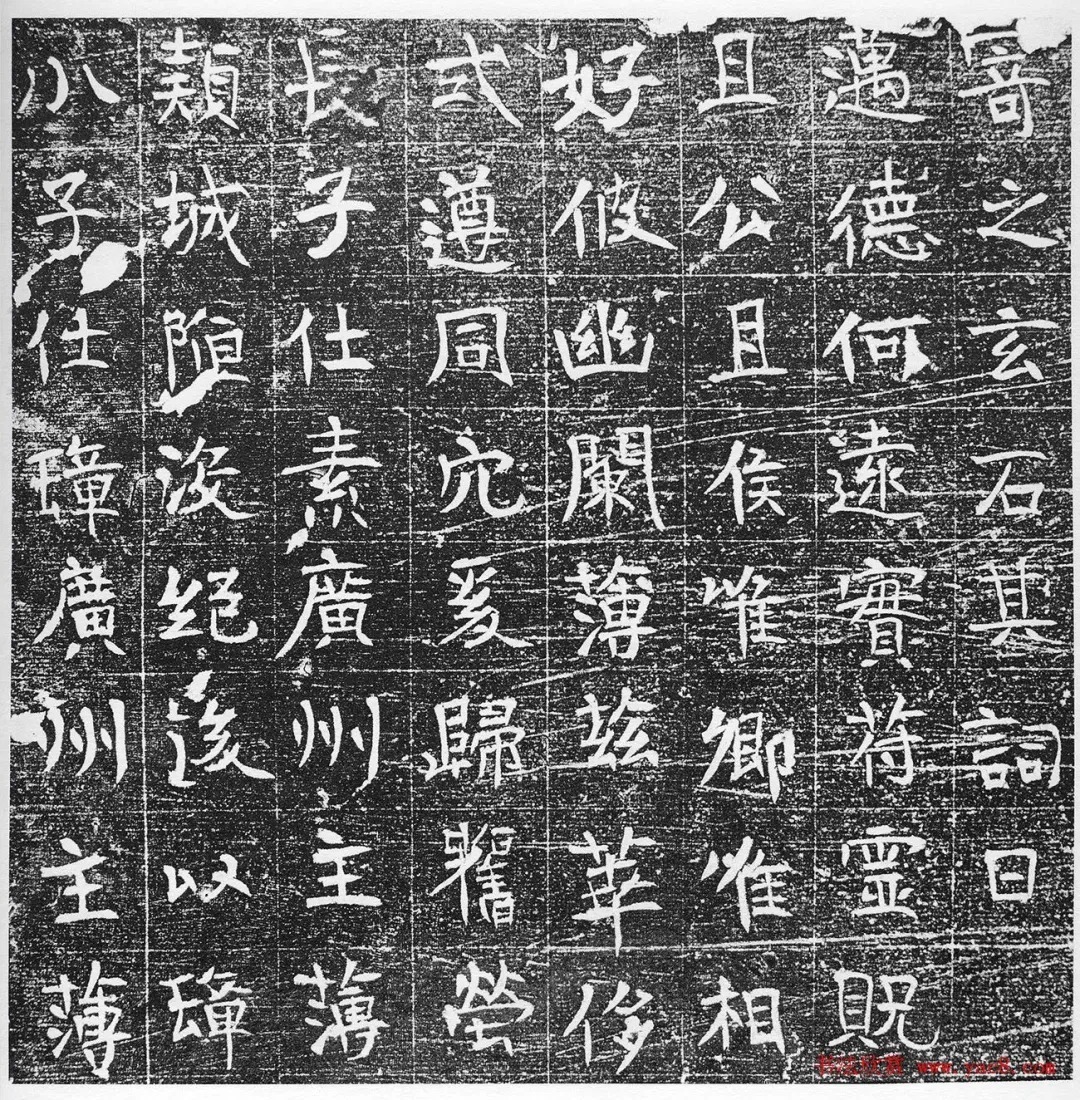 寄之玄石其詞曰
邁德何遠寶符靈貺
且公且侯唯卿唯相
好仇幽蘭薄茲華侈
式遵同穴爰歸舊塋
長子仕素廣州主薄
穎城隕沒絕後以璋
小子仕璋廣州主薄